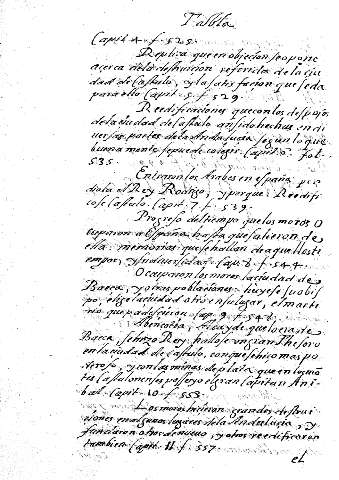 Tabla
Capit. 4. f. 525.
Replica que en objecion se opone
acerca de la destruicion referida de la ciu
dad de Castulo, y la satisfacion que se da
para ello Capit. 5. f. 529.
Reedificaciones que con los despojos
de la ciudad de Castulo an sido hechas en di
uersas partes de la Andalucia segun lo que
buena mente se puede colegir. Capit. 6. fol.
535.
Entraron los Arabes en españa per
diola el Rey Rodrigo, y porque. Reedifi
cose Castulo. Capit. 7. f. 539.
Progreso del tiempo que los moros o
cuparon a España, hasta que salieron de
ella. memorias que se hallan de aquellos ti
empos, y su diuersidad. Cap. 8. f. 544.
Ocuparon los moros la ciudad de
Baeca, y otras poblaciones. huyese su obis
po, elige la ciudad otro en su lugar, el marti
rio que padescieron. Cap. 9. f. 548.
Alcayde que lo era de
Baeca, se hizo Rey. hallose un gran Thesoro
en la ciudad de Castulo, con que se hizo mas po
deroso, y con las minas de plata que en los mon
tes Castulonenses posseyo el gran Capitan Ani
bal. Capit. 10. f. 553.
Los moros hicieron grandes destrui
ciones en algunos lugares de la Andalucia, y
fundaron otros de nueuo, y otros reedificaron
tambien. Capit. 11. f. 557.
el